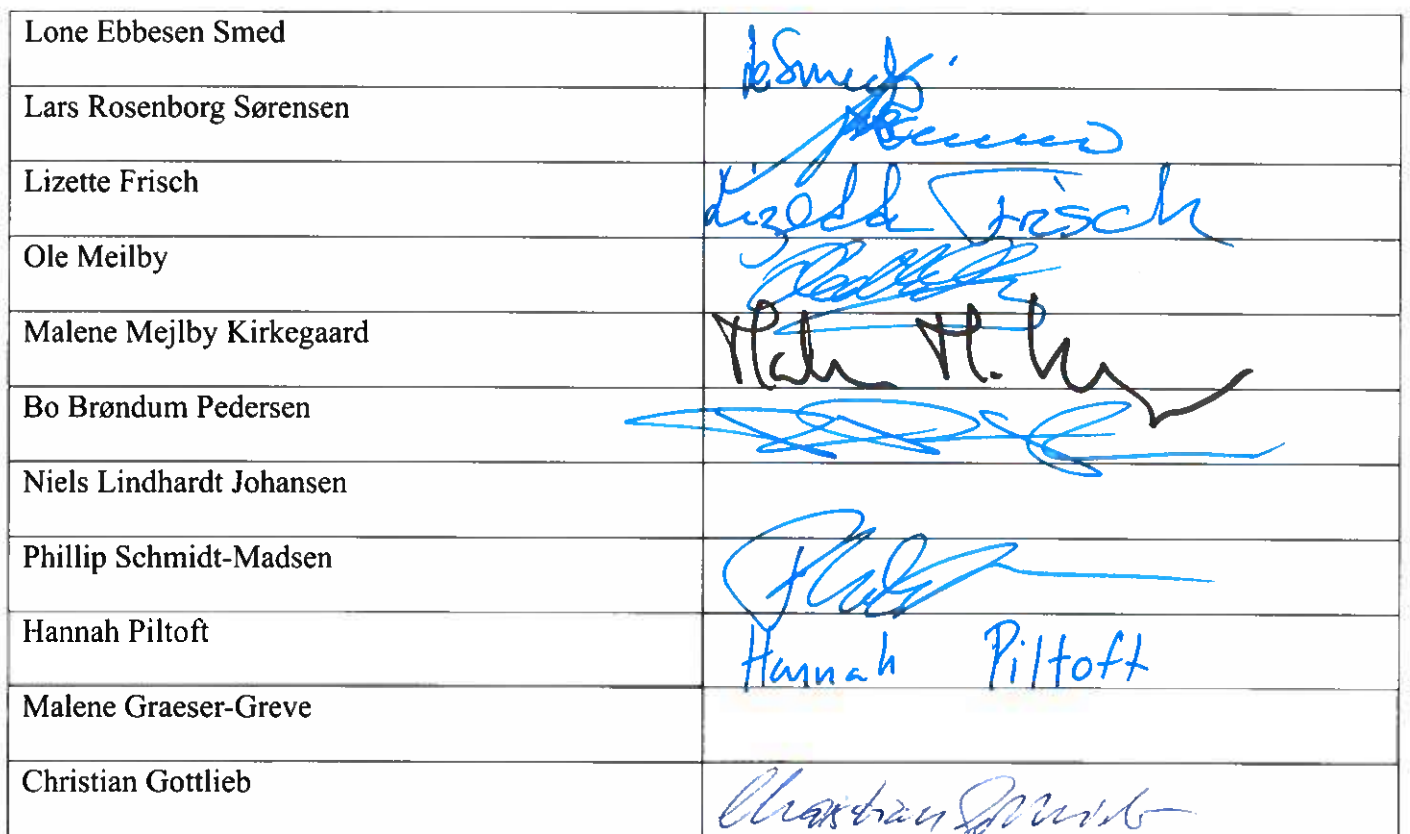 Lone Ebbesen Smed
Lars Rosenborg Sørensen
Lizette Frisch
Lizette Frisch
Ole Meilby
Malene Mejlby Kirkegaard
Bo Brøndum Pedersen
Niels Lindhardt Johansen
Phillip Schmidt-Madsen
Hannah Piltoft
Hannah Piltoft
Malene Graeser-Greve
Christian Gottlieb
Christian